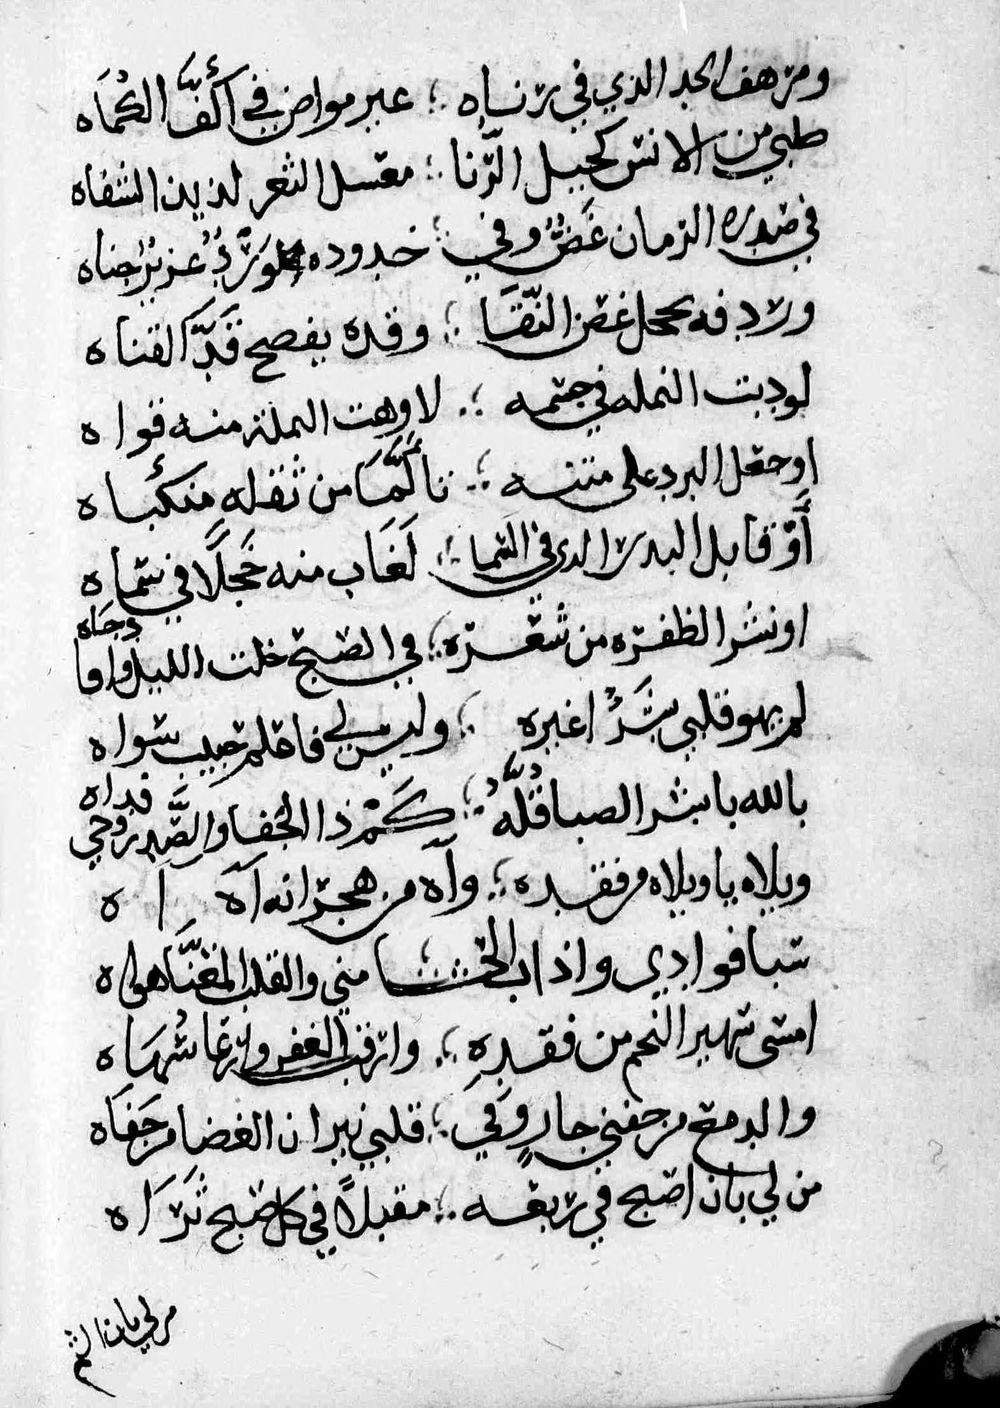 ومرهف الحد الذي في رناه ؛ غير مواض في أكفّ الكماه
ظبي من الانس كحيل الرّنا ؛ معسل الثغر لذيذ الشفاه
في صدره الرمان غَضٌّ وفي ؛ خدوده وَرْدٌ عزيز جناه
وردفه يخجل غصن النّقَا ؛ وقده يفصح قَدَّ القناه
لو دبت النمله في جسمه ؛ لاوهت النملة منه قواه
او جعل البرد على متنه ؛ تألَّمَا من ثقله منكباه
أَوْ قابل البدر الذي في السّما ؛ لَغَاب منه خَجَلًا في سماه
او نشر الظفره من شعره ؛ في الصبح خلت الليل وافا دجَاه
لم يهو قلبي بَشَرًا غيره ؛ وليس لي فاعلم حبيب سواه
بالله يا نشر الصبا قُلْ لَّهُ ؛ كَمْ ذا الجفا والصَّد روحي فداه
ويلاه يا ويلاه من فقده ؛ وآه من هجرانه آه اه
سبا فوادي واذاب الحشا ؛ مني والقلب المعَنَّا هواه
امسى سهير النجم من فقدهِ ؛ وارقب الغفر وارعا سُهَاه
والدمع من جفني جارٍ وَفي ؛ قلبي نيران الغضا من جَفَاه
من لي بان اصبح في ربعه ؛ مقبلًا في كل صبح ثَرَاه
من لي بان الثم